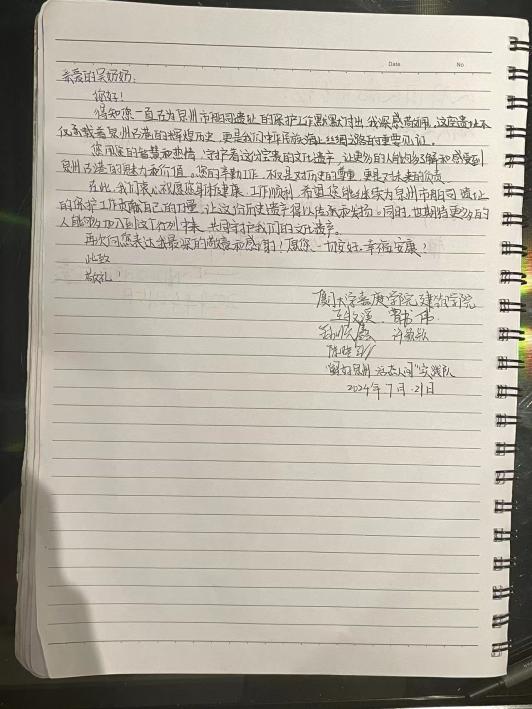 Date No
亲爱的吴奶奶:
您好!
得知您一直在为泉州市舶司遗址的保护工作默默付出,我深感敬佩,这座遗址不
仅承载着泉州古港的辉煌历史,更是我们中华民族海上丝绸之路的重要见证。
您用您的智慧和热情,守护着这份宝贵的文化遗产,让更多的人能够了解和感受到
泉州古港的魅力和价值。您的辛勤工作,不仅是对历史的尊重,更是对未来的负责
在此,我们衷心祝愿您身体健康、工作顺利,希望您能继续为泉州市舶司遗址
的保护工作贡献自己的力量,让这份历史遗产得以传承和发扬。同时,也期待更多的
人能够加入到这个行列中来,共同守护我们的文化遗产。
再次向您表达我最深的敬意和感谢!愿您一切安好,幸福安康!
此致
敬礼!
厦门大学嘉庚学院 建筑学院
许敏
泉州 人间"实践队
2024年7月21日